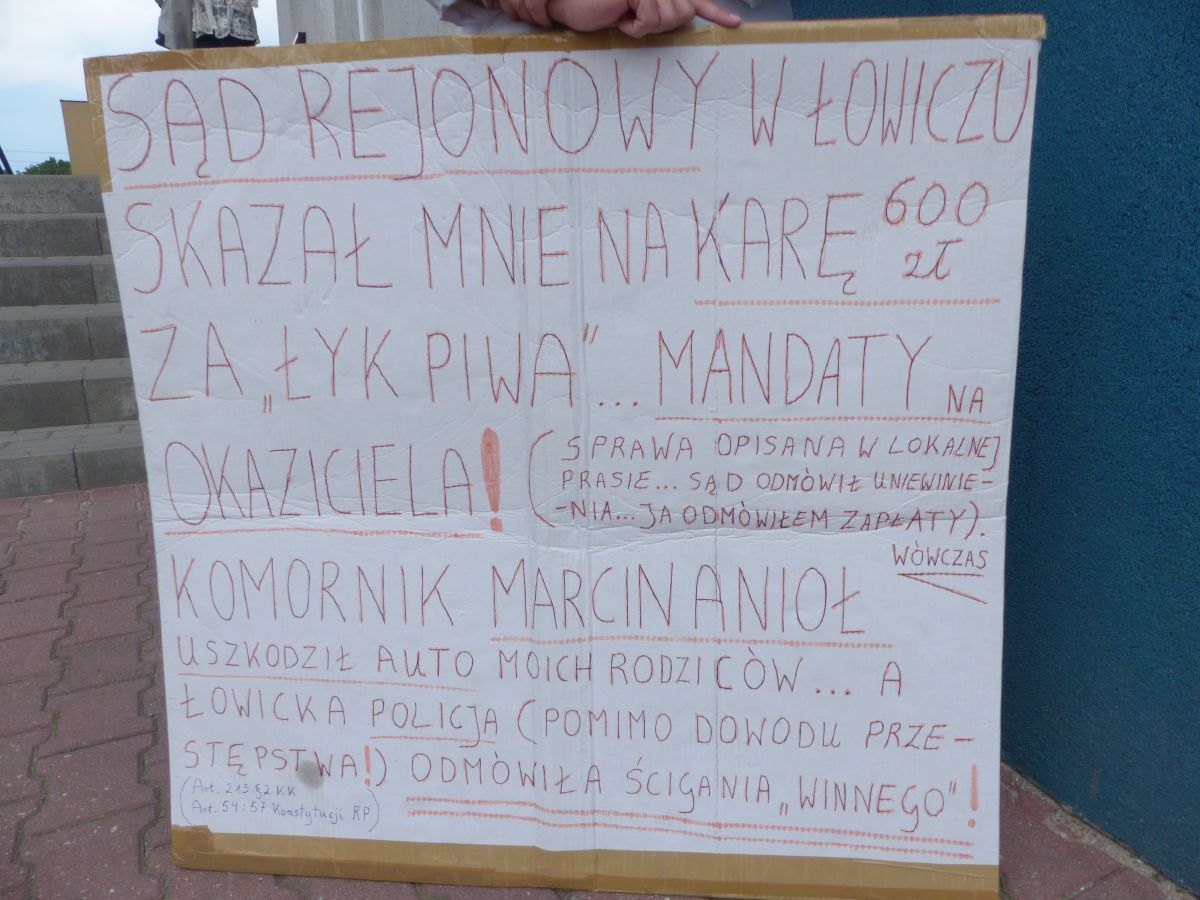 SĄD REJONOWY W ŁOWICZU
SKAZAŁ MNIE NA KARĘ 600 zł
ZA „ŁYK PIWA”... MANDATY NA
OKAZICIELA! (SPRAWA OPISANA W LOKALNEJ
PRASIE... SĄD ODMÓWIŁ UNIEWINIE-
-NIA... JA ODMÒWIŁEM ZAPŁATY).
WÒWCZAS
KOMORNIK MARCIN ANIOŁ
USZKODZIŁ AUTO MOICH RODZICÓW... A
ŁOWICKA POLICJA (POMIMO DOWODU PRZE-
STĘPSTWA!) ODMÒWIŁA ŚCIGANIA „WINNEGO”!
(Art. 213 §2 KK
Art. 54 i 57 Konstytucji RP)